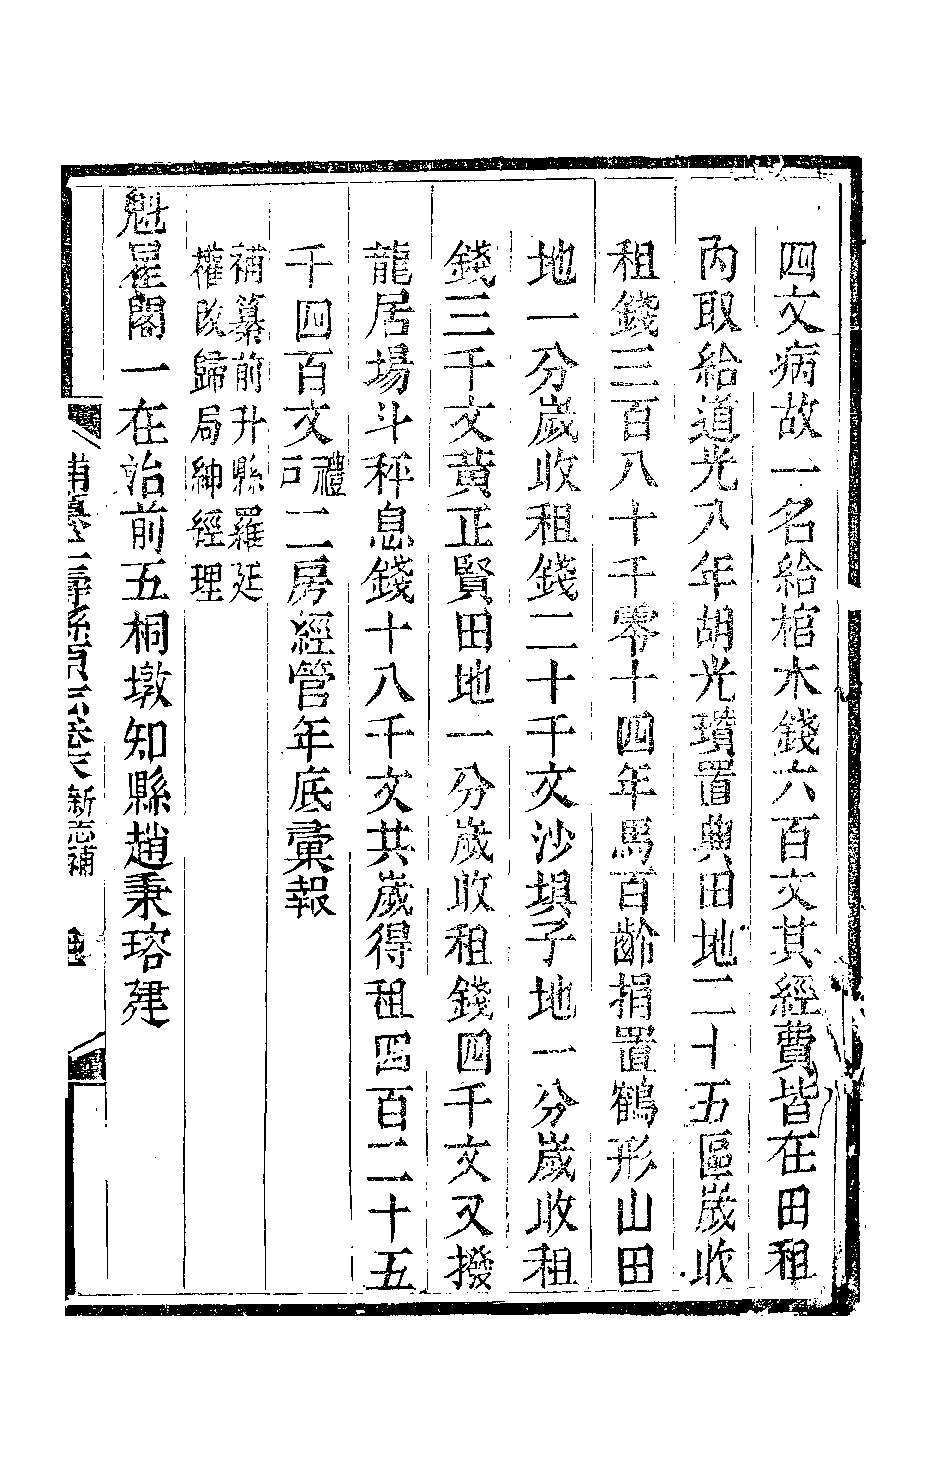 四文病故一名給棺木錢六百文其經費皆在田租
內取給道光八年胡光瓚置典田地二十五區歲收
租錢三百八十千零十四年馬百齡捐置鶴形山田
地一分歲收租錢二十千文沙埧子地一分歲收租
錢三千文黃正賢田地一分歲收租錢四千文又撥
龍居場斗秤息錢十八千文共歲得租四百二十五
千四百文戶禮二房經管年底彙報
補纂前升縣羅廷
權改歸局紳經理
魁星閣一在治前五桐墩知縣趙秉瑢建
新志補